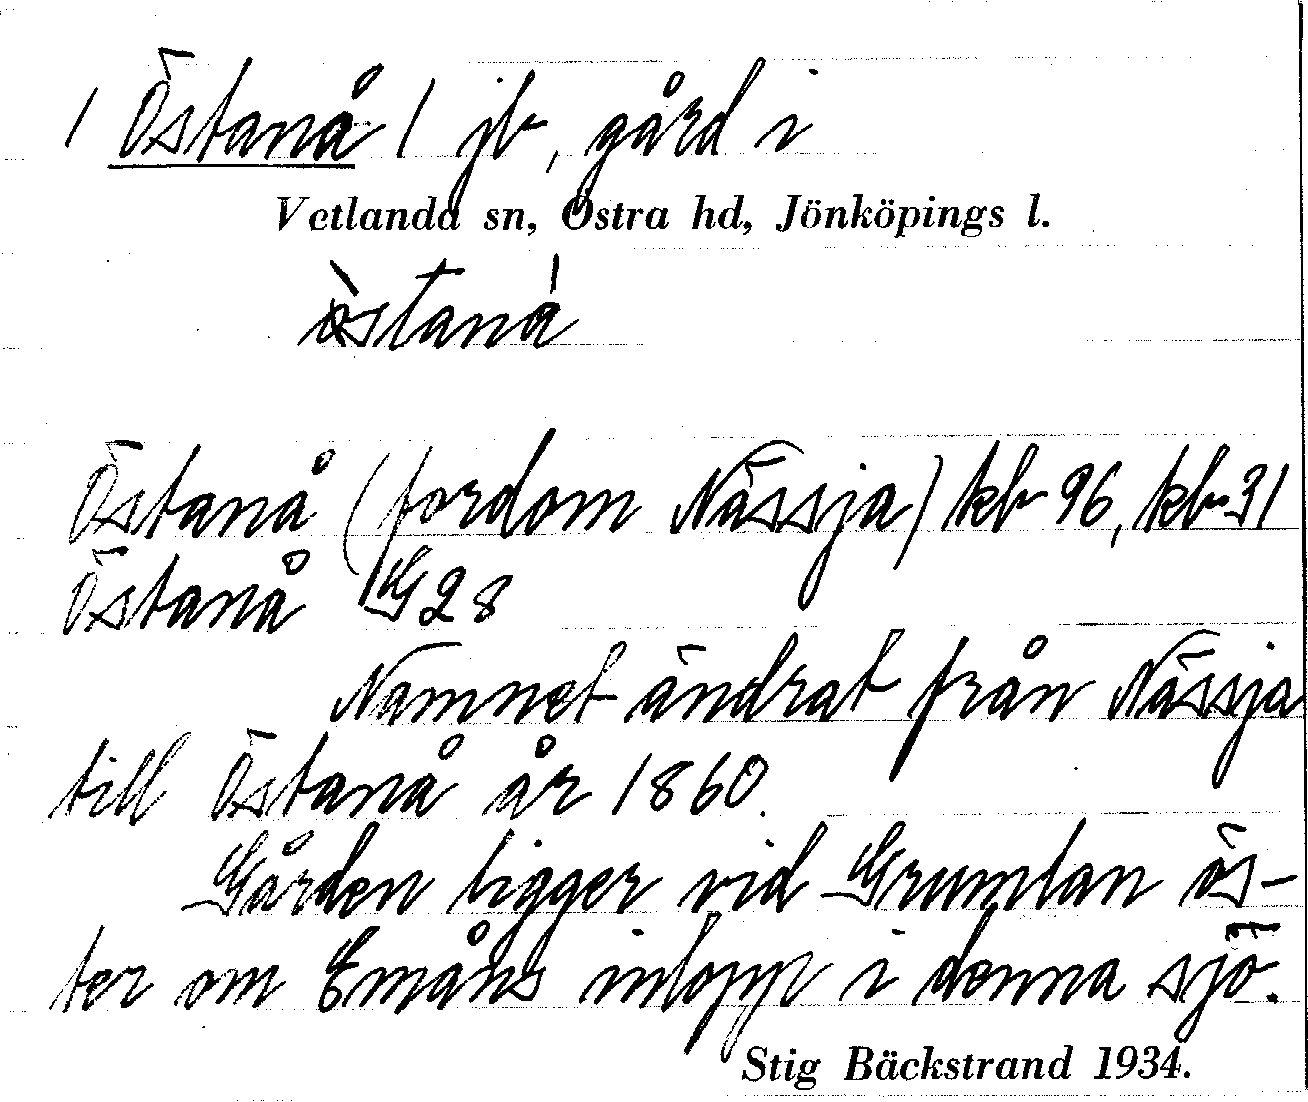 / Östanå / jb, gård i
Vetlanda sn, Östra hd, Jönköpings l.
östanå
Östanå (fordom Nässja) kb 96, kb 31
Östanå G 28
Namnet ändrat från Nässja
till Östanå år 1860.
Gården ligger vid Grumlan ös-
ter om Emåns inlopp i denna sjö.
Stig Bäckstrand 1934.